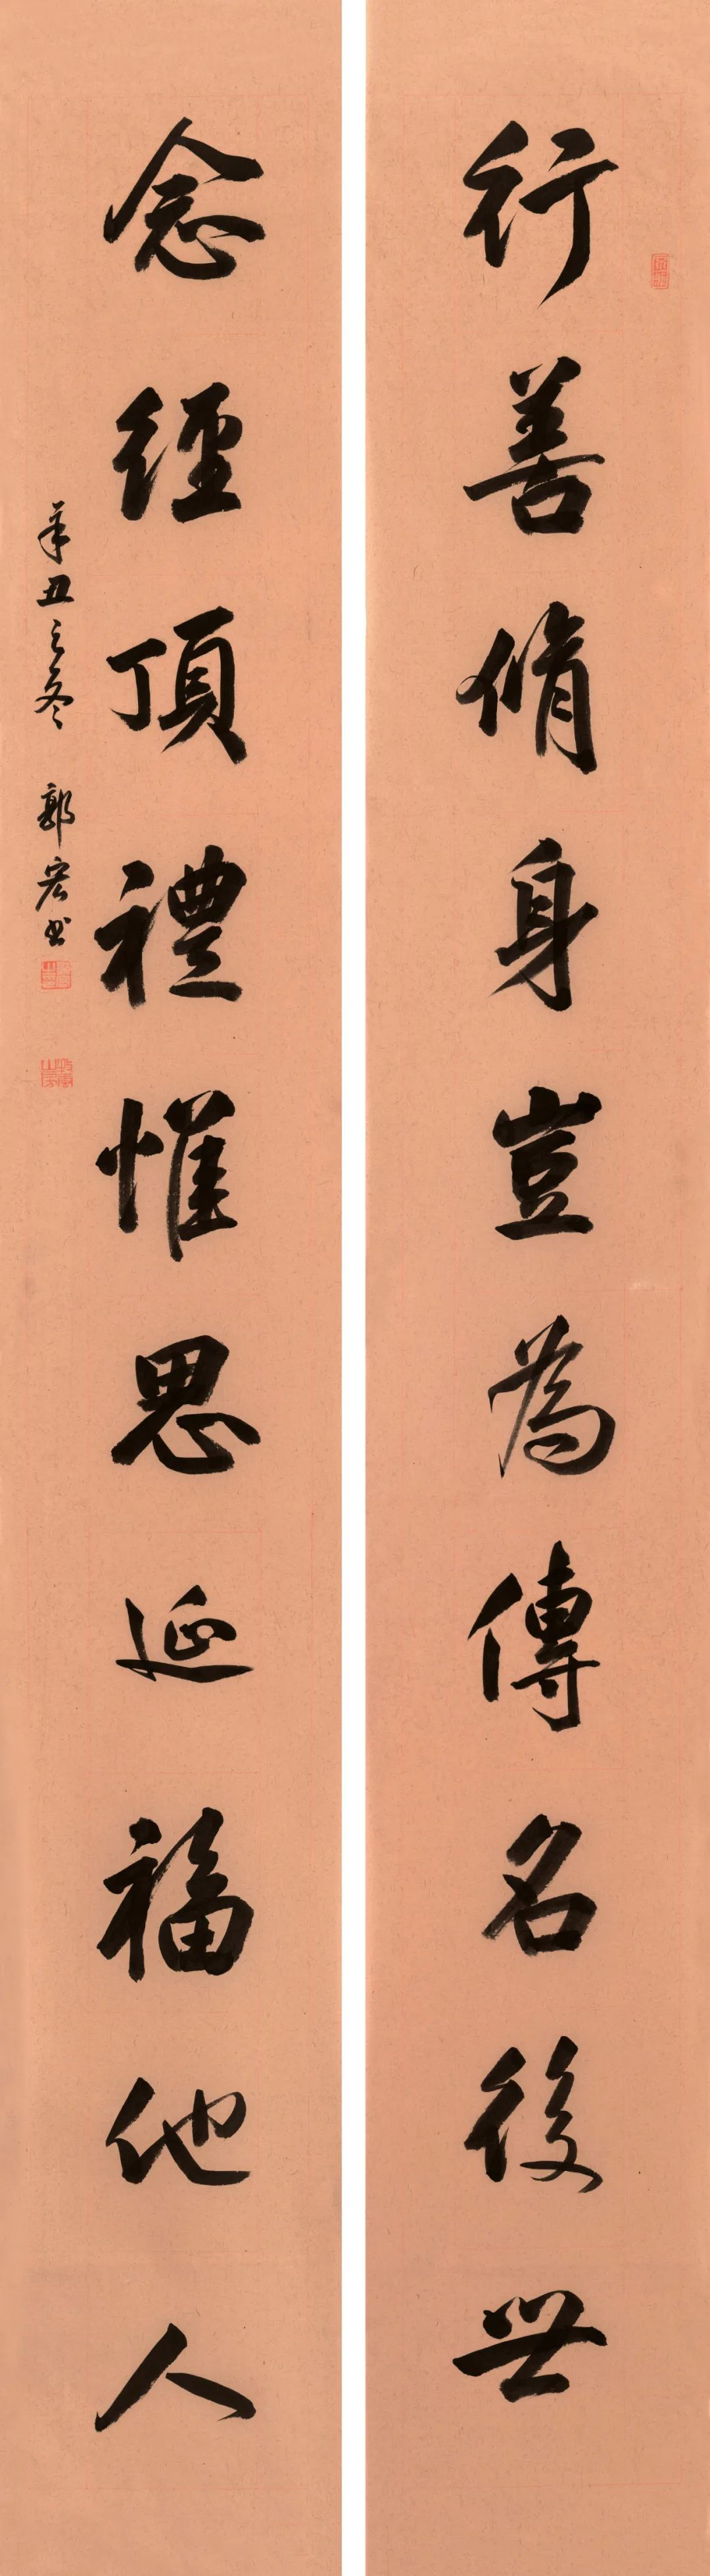 行善脩身豈為傳名後世
念經頂禮惟思延福他人
辛丑之冬 郭宏书